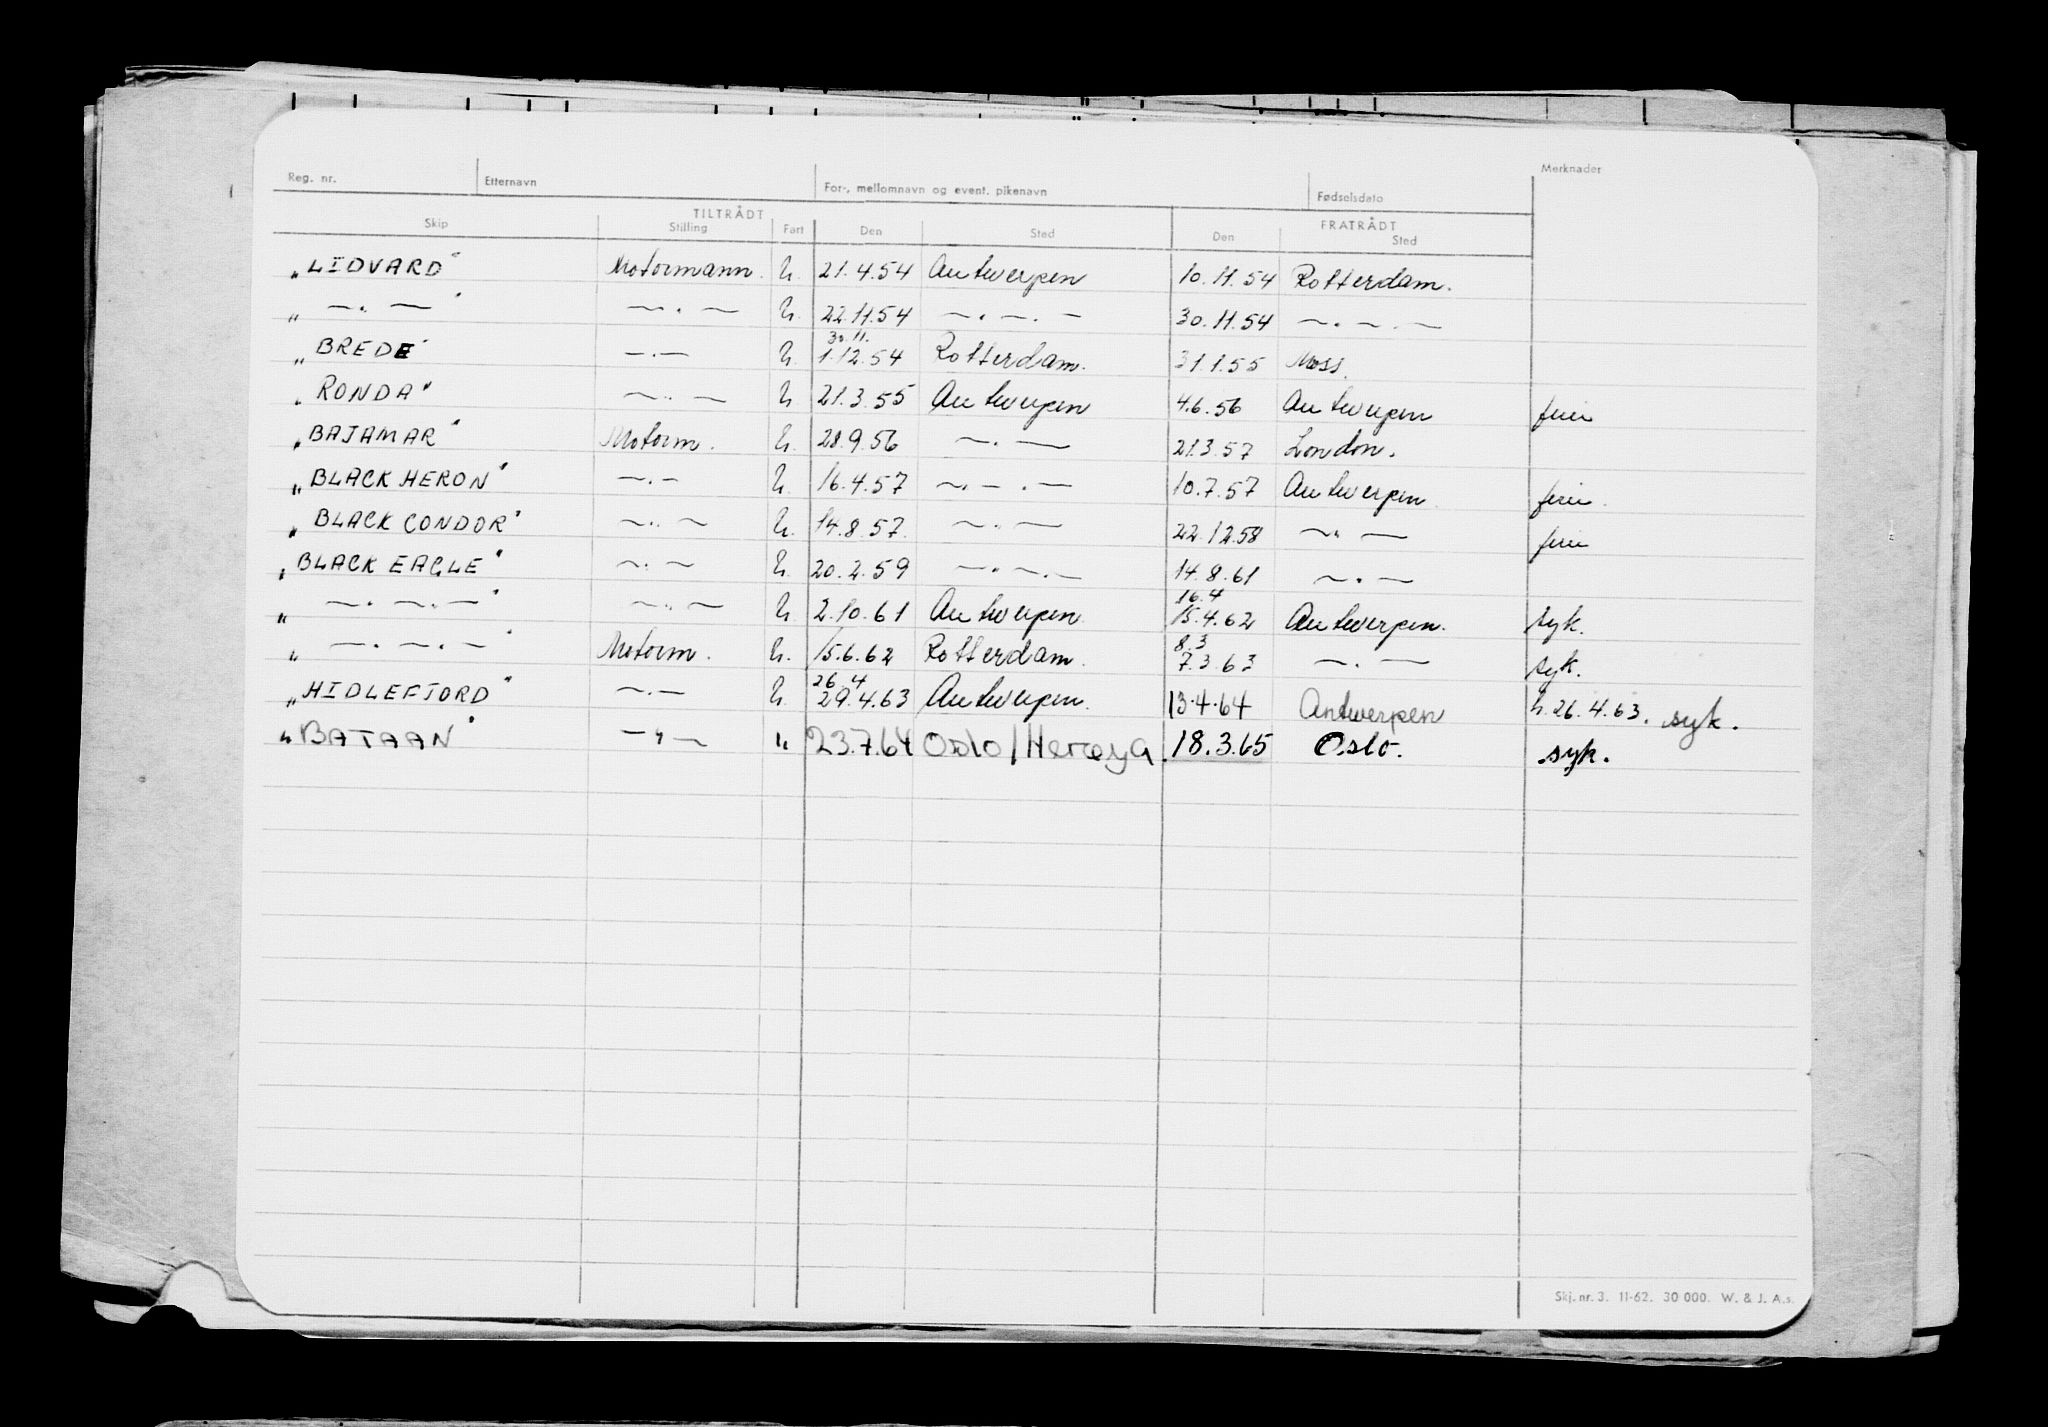 Reg. nr. Etternavn For-, mellomnavn og event. pikenavn Fødselsdato Merknader
TILTRÅDT FRATRÅDT
Skip Stilling Fart Den Sted Den Sted
"LIDVARD" Motormann. U. 21.4.54 Antwerpen 10.11.54 Rotterdam.
" — . — " — . — U. 22.11.54 — . — . — 30.11.54 — . — . —
30.11.
"BREDE" — . — U. 1.12.54 Rotterdam. 31.1.55 Moss.
"RONDA" — . — U 21.3.55 Antwerpen 4.6.56 Antwerpen ferie
"BAJAMAR" Motorm. U. 28.9.56 — . — 21.3.57 London.
"BLACK HERON" — . — U. 16.4.57 — . — . — 10.7.57 Antwerpen ferie.
"BLACK CONDOR" — . — U. 14.8.57. — . — 22.12.58 — " — ferie
"BLACK EAGLE" — . — U. 20.2.59 — . — . — 14.8.61 — . —
16.4
" — . — . — " — . — U. 2.10.61 Antwerpen 15.4.62 Antwerpen. syk.
8.3
" — . — . — " Motorm. U. 15.6.62 Rotterdam. 7.3.63 — . — syk.
26.4
"HIDLEFJORD" — . — U. 29.4.63 Antwerpen. 13.4.64 Antwerpen h. 26.4.63. syk.
"BATAAN" — " — " 23.7.64 Oslo/Herøya. 18.3.65 Oslo. syk.
Skj. nr. 3. 11-62. 30 000. W. & J. A.s.